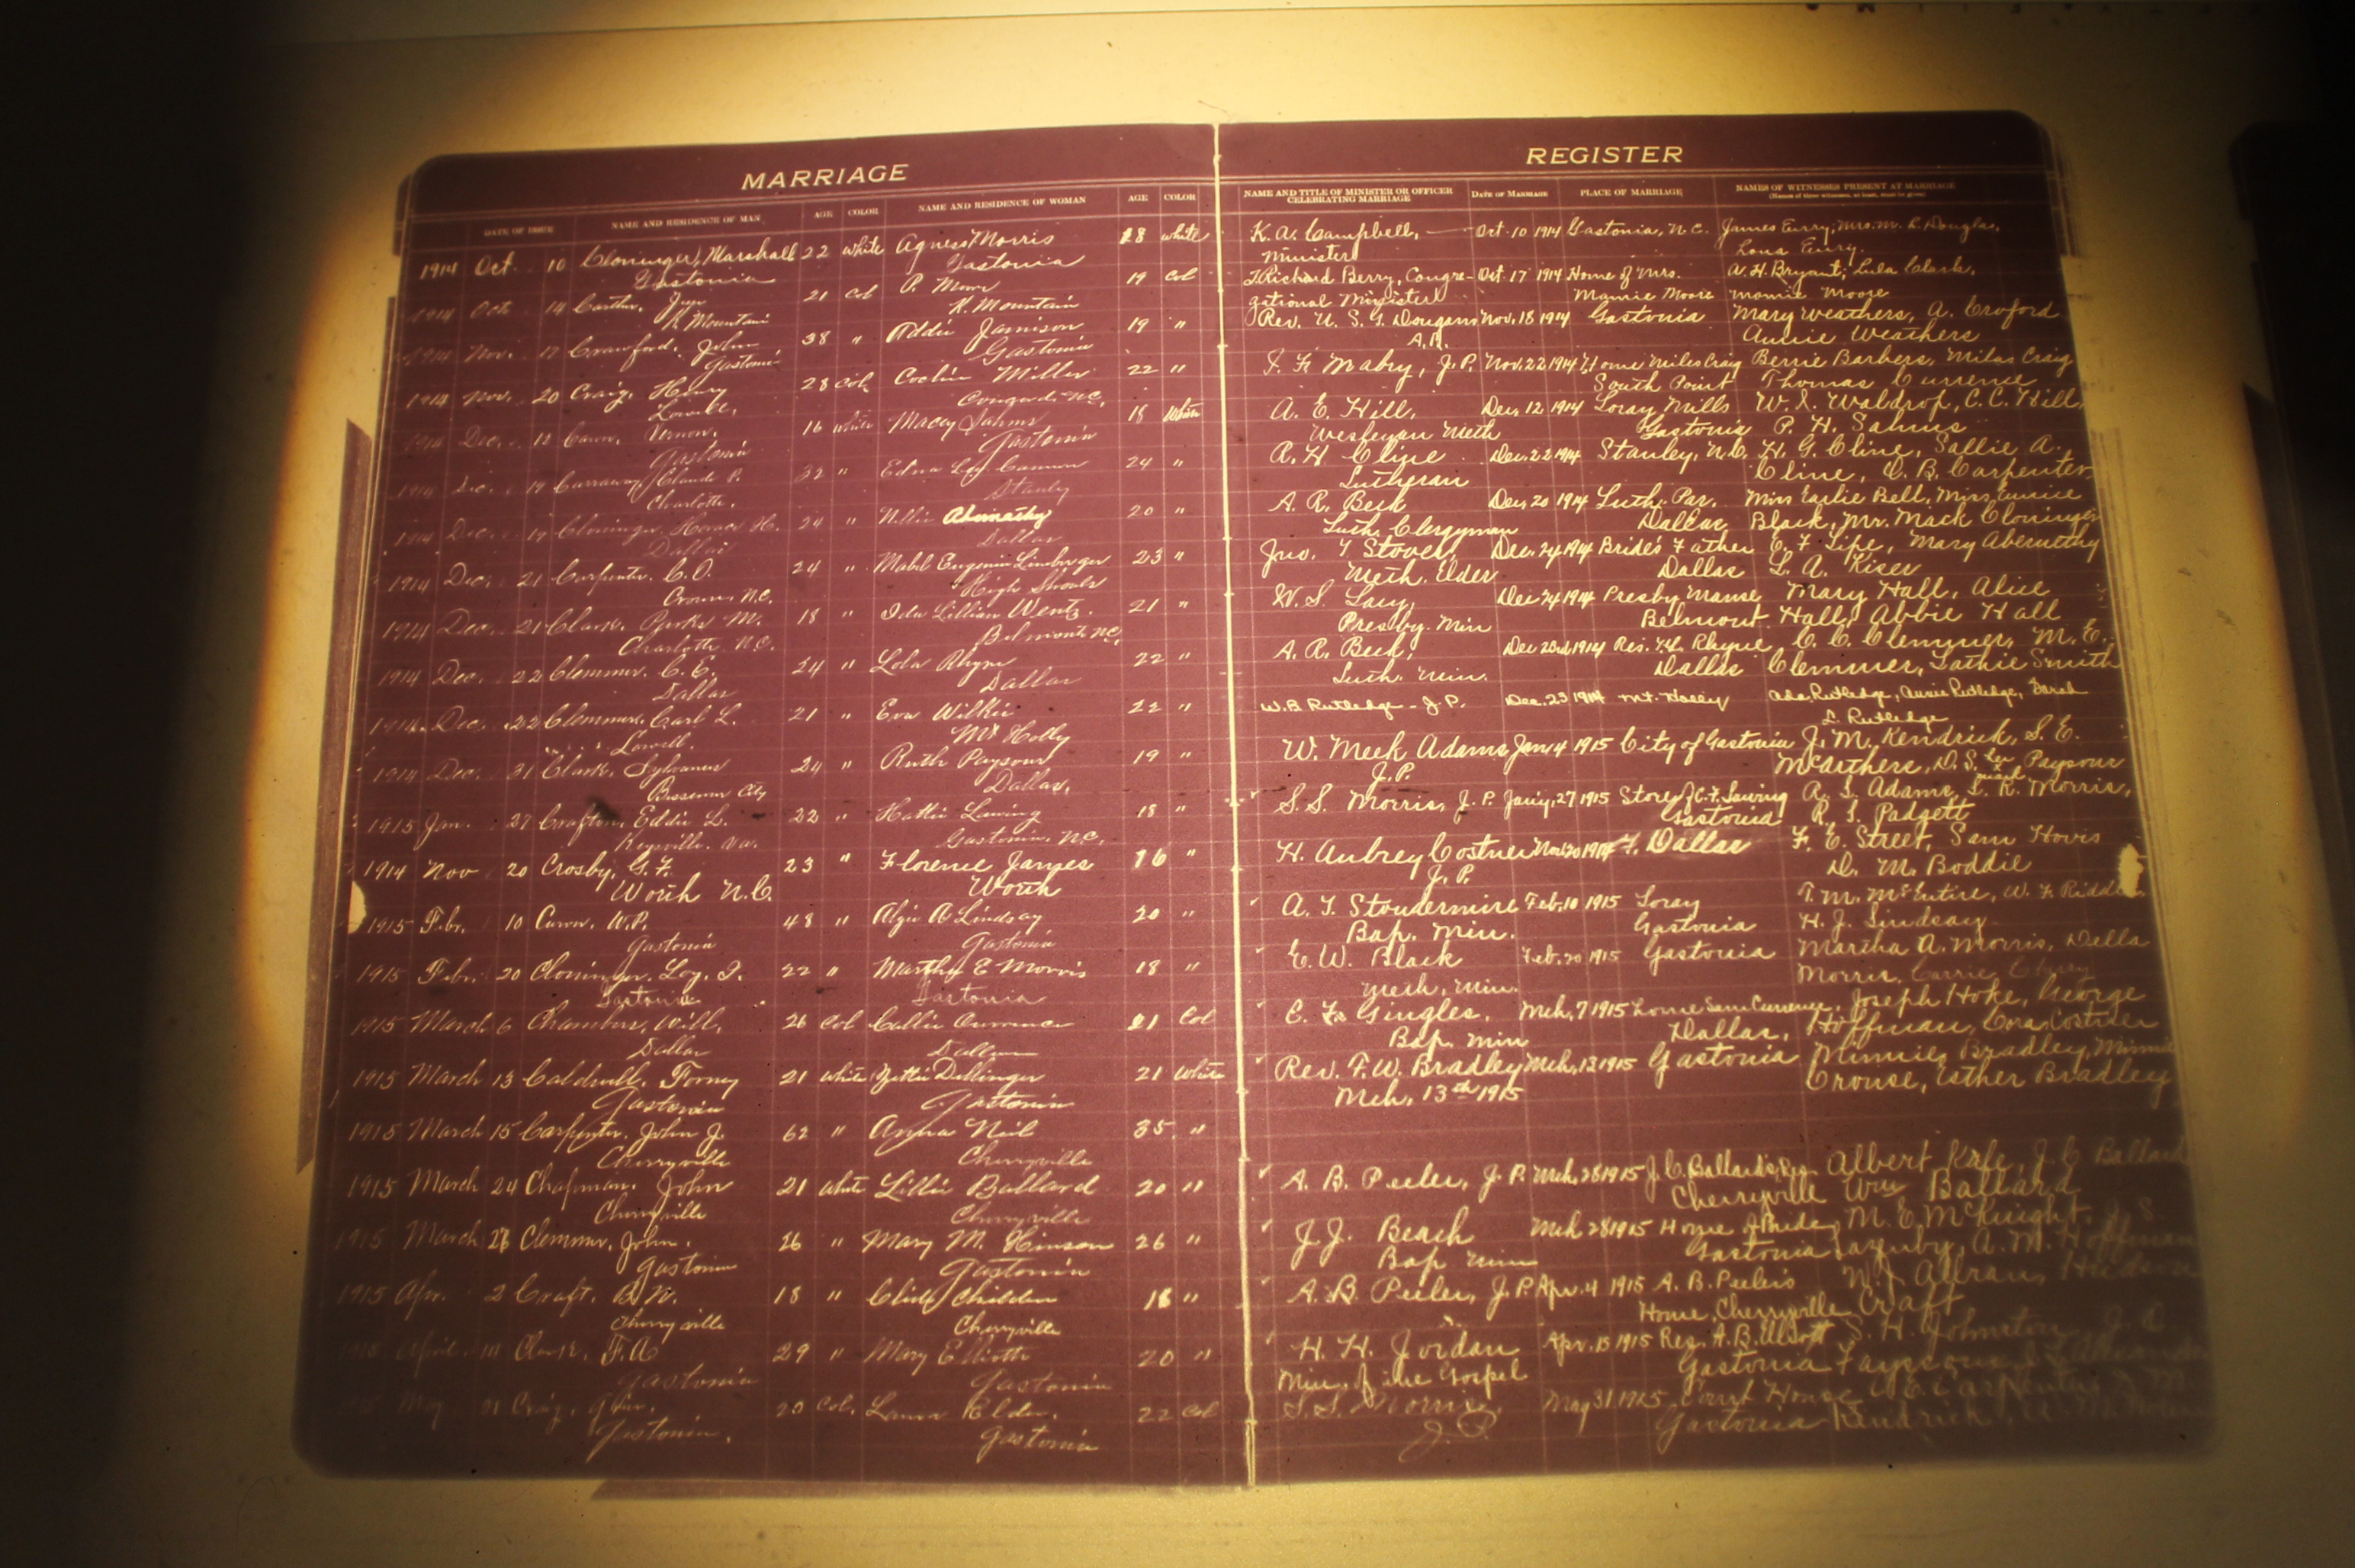 MARRIAGE
DATE OF ISSUE NAME AND RESIDENCE OF MAN AGE COLOR NAME AND RESIDENCE OF WOMAN AGE COLOR
1914 Oct. 10 Cloninger, Marshall 22 white Agness Morris 18 white
Gastonia Gastonia
1914 Oct 14 Carther, 21 Col P. Moore 19 Col
K Mountain K. Mountain
1914 Nov. 17 Crawford, John 38 " Addie Jamison 19 "
Gastonia Gastonia
1914 Nov. 20 Craig, Henry 28 Col. Miller 22 "
Lowell. Concord, N.C.
1914 Dec. 12 Vernon. 16 white Macey Sahms 18 White
Gastonia Gastonia
1914 Dec. 19 Carraway, Claude P. 32 " Edna Cannon 24 "
Charlotte. Stanly
1914 Dec. 19 Cloninger, Horace H. 24 " Nellie Abernathy 20 "
Dallas Dallas
1914 Dec. 21 Carpenter. C.O. 24 " Mabel Eugenia Lineberger 23 "
N.C. High Shoals
1914 Dec. 21 Clark, Parks M. 18 " Ida Lillian Wentz. 21 "
Charlotte N.C. Belmont N.C.
1914 Dec. 22 Clemmer. C.E. 24 " Lola Rhyne 22 "
Dallas Dallas
1914 Dec. 22 Clemmer. Carl L. 21 " Eva Wilkie 22 "
Lowell. Mt Holly
1914 Dec. 31 Clark, Sylvanus 24 " Ruth Paysour 19 "
Bessemer City Dallas,
1915 Jan. 27 Crafton, Eddie L. 22 " Hattie Lawing 18 "
Keysville. Va. Gastonia, N.C.
1914 Nov 20 Crosby, G.F. 23 " Florence Janges 16 "
Worth N.C. Worth
1915 Febr. 10 W.P. 48 " Algie A Lindsay 20 "
Gastonia Gastonia
1915 Febr. 20 Cloninger. Loy. I. 22 " Marthy E Morris 18 "
Gastonia Gastonia
1915 March 6 Chambers, Will, 26 Col Callie Currence 21 Col
Dallas Dallas
1915 March 13 Caldwell, Forney 21 white Zettie Dellinger 21 White
Gastonia Gastonia
1915 March 15 Carpenter. John J. 62 " Anna Neil 35 "
Cherryville Cherryville
1915 March 24 Chapman. John 21 white Lillie Ballard 20 "
Cherryville Cherryville
1915 March 27 Clemmer, John. 26 " Mary M. Hinson 26 "
Gastonia Gastonia
1915 Apr. 2 Craft, B.W. 18 " Childers 18 "
Cherryville Cherryville
1915 April F.A. 29 " Mary Elliott 20 "
Gastonia Gastonia
May Craig, 20 Col. Laura Elder. 22 Col
Gastonia. Gastonia
REGISTER
NAME AND TITLE OF MINISTER OR OFFICER DATE OF MARRIAGE PLACE OF MARRIAGE NAMES OF WITNESSES PRESENT AT MARRIAGE
CELEBRATING MARRIAGE (Names of three witnesses, at least, must be given)
K. A. Campbell, Oct. 10 1914 Gastonia, N.C. James Curry, Mrs. M. L. Douglas,
Minister Lona Curry.
J Richard Berry, Congre- Oct. 17 1914 Home of Mrs. A. H. Bryant, Lula Clark,
gational Minister Mamie Moore Mamie Moore
Rev. U. S. G. Dougans Nov. 18 1914 Gastonia Mary Weathers, A. Croford
Annie Weathers
I. F. Mabry, J.P. Nov. 22 1914 Home Miles Craig Berrie Barbers, Milas Craig
South Point Thomas Currence
A. E. Hill, Dec. 12 1914 Loray Mills W. I. Waldrop, C. C. Hill,
Wesleyan Meth Gastonia P. H. Sahms
R. H Cline Dec. 22 1914 Stanley, N.C. H. G. Cline, Sallie A.
Lutheran Cline, D. B. Carpenter
A. R. Beck Dec. 20 1914 Luth. Par. Miss Earlie Bell, Miss Eunice
Luth. Clergyman Dallas Black, Mr. Mack Cloninger
Jno. F Stover, Dec. 24 1914 Bride's Father C. F Lipe, Mary Abernethy
Meth. Elder Dallas L. A. Kiser
W. S. Lacy, Dec 24 1914 Presby Manse Mary Hall, Alice
Presby. Min Belmont Hall, Abbie Hall
A. R. Beck, Dec 23rd 1914 Res. Rhyne C. C. Clemmer, M. E.
Luth. Min. Dallas Clemmer, Lathie Smith
W. B Rutledge - J.P. Dec. 23 1914 Mt. Holly Ada Rutledge, Susie Rutledge, Sarah
L. Rutledge
W. Meek Adams Jan 4 1915 City of Gastonia J. M. Kendrick, S. E.
J.P. McArthers, D. S. Paysour
mark
S. S. Morris, J. P. Jany, 27 1915 Store of C. F. Lawing R. L. Adams, L. K. Morris,
Gastonia R. L. Padgett
H. Aubrey Costner Nov 20 1914 Dallas F. E. Street, Sam Hovis
J.P. D. M. Boddie
A. T. Stoudermire Feb. 10 1915 Loray T. M. McEntire, W. F. Riddle
Bap. Min. Gastonia H. J. Lindsay
E. W. Black Feb. 20 1915 Gastonia Martha A. Morris, Della
Meth. Min. Morris, Carrie
C. F. Gingles, Mch, 7 1915 Home Sam Currence, Joseph Hoke, George
Bap. Min Dallas, Hoffman, Cora Costner
Rev. F. W. Bradley Mch, 13 1915 Gastonia Minnie Bradley, Minnie
Mch, 13th 1915 Crouse, Esther Bradley
A. B. Peeler, J. P. Mch, 28 1915 J. C. Ballard's Res. Albert Kale, J. C Ballard
Cherryville Wm Ballard
J. J. Beach Mch 28 1915 Home of Bride, M. E. McKnight, J. S.
Bap Min Gastonia Lazenby, A. M. Hoffman
A. B Peeler, J. P. Apr. 4 1915 A. B. Peeler's W. J. Allran, Hudson
Home, Cherryville Craft
H. H. Jordan Apr. 15 1915 Res. A. B. Elliott S. H. Johnston, J. C
Min. of the Gospel Gastonia Fayssoux,
S. S. Morris, May 31 1915 Court House C. E. Carpenter, J. M
J. P. Gastonia Kendrick,